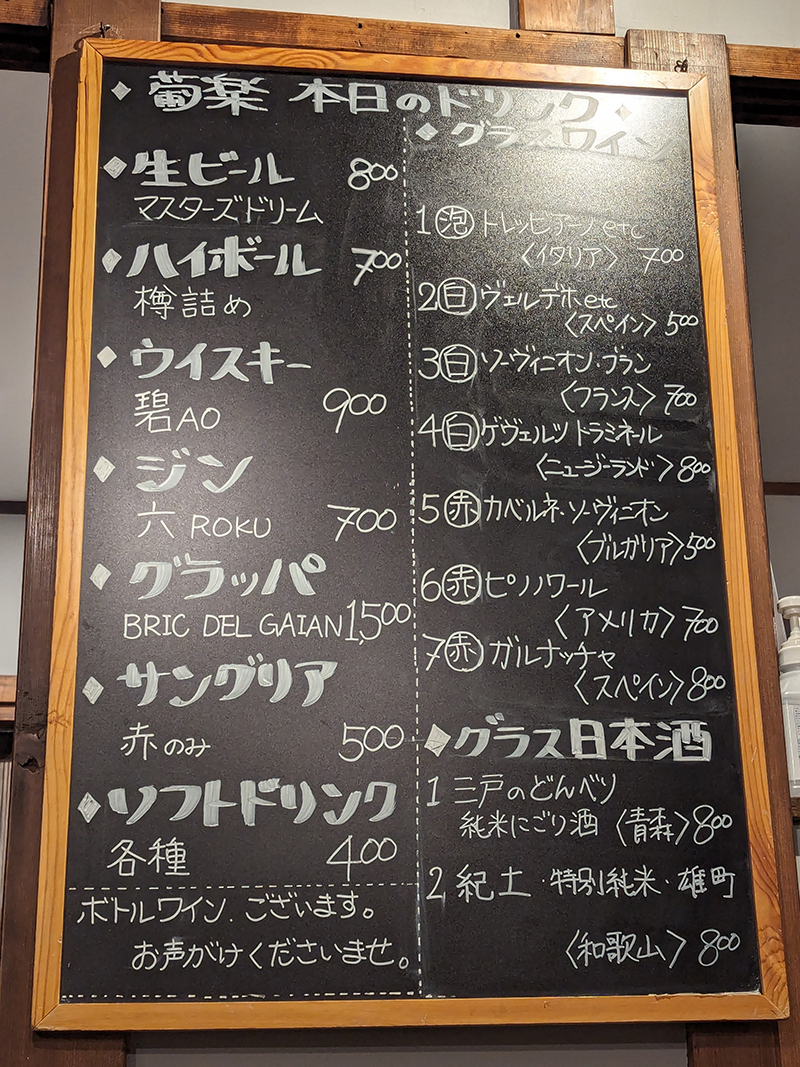 葡楽 本日のドリンク
生ビール 800
マスターズドリーム
ハイボール 700
樽詰め
ウイスキー
碧AO 900
ジン
六 ROKU 700
グラッパ
BRIC DEL GAIAN 1,500
サングリア
赤のみ 500
ソフトドリンク
各種 400
ボトルワイン、ございます。
お声がけくださいませ。
グラスワイン
1 泡 トレッビアーノetc
〈イタリア〉 700
2 白 ヴェルデホetc
〈スペイン〉 500
3 白 ソーヴィニオン・ブラン
〈フランス〉 700
4 白 ゲヴェルツトラミネール
〈ニュージーランド〉 800
5 赤 カベルネ・ソーヴィニオン
〈ブルガリア〉 500
6 赤 ピノノワール
〈アメリカ〉 700
7 赤 ガルナッチャ
〈スペイン〉 800
グラス日本酒
1 三戸のどんべり
純米にごり酒 〈青森〉 800
2 紀土・特別純米・雄町
〈和歌山〉 800